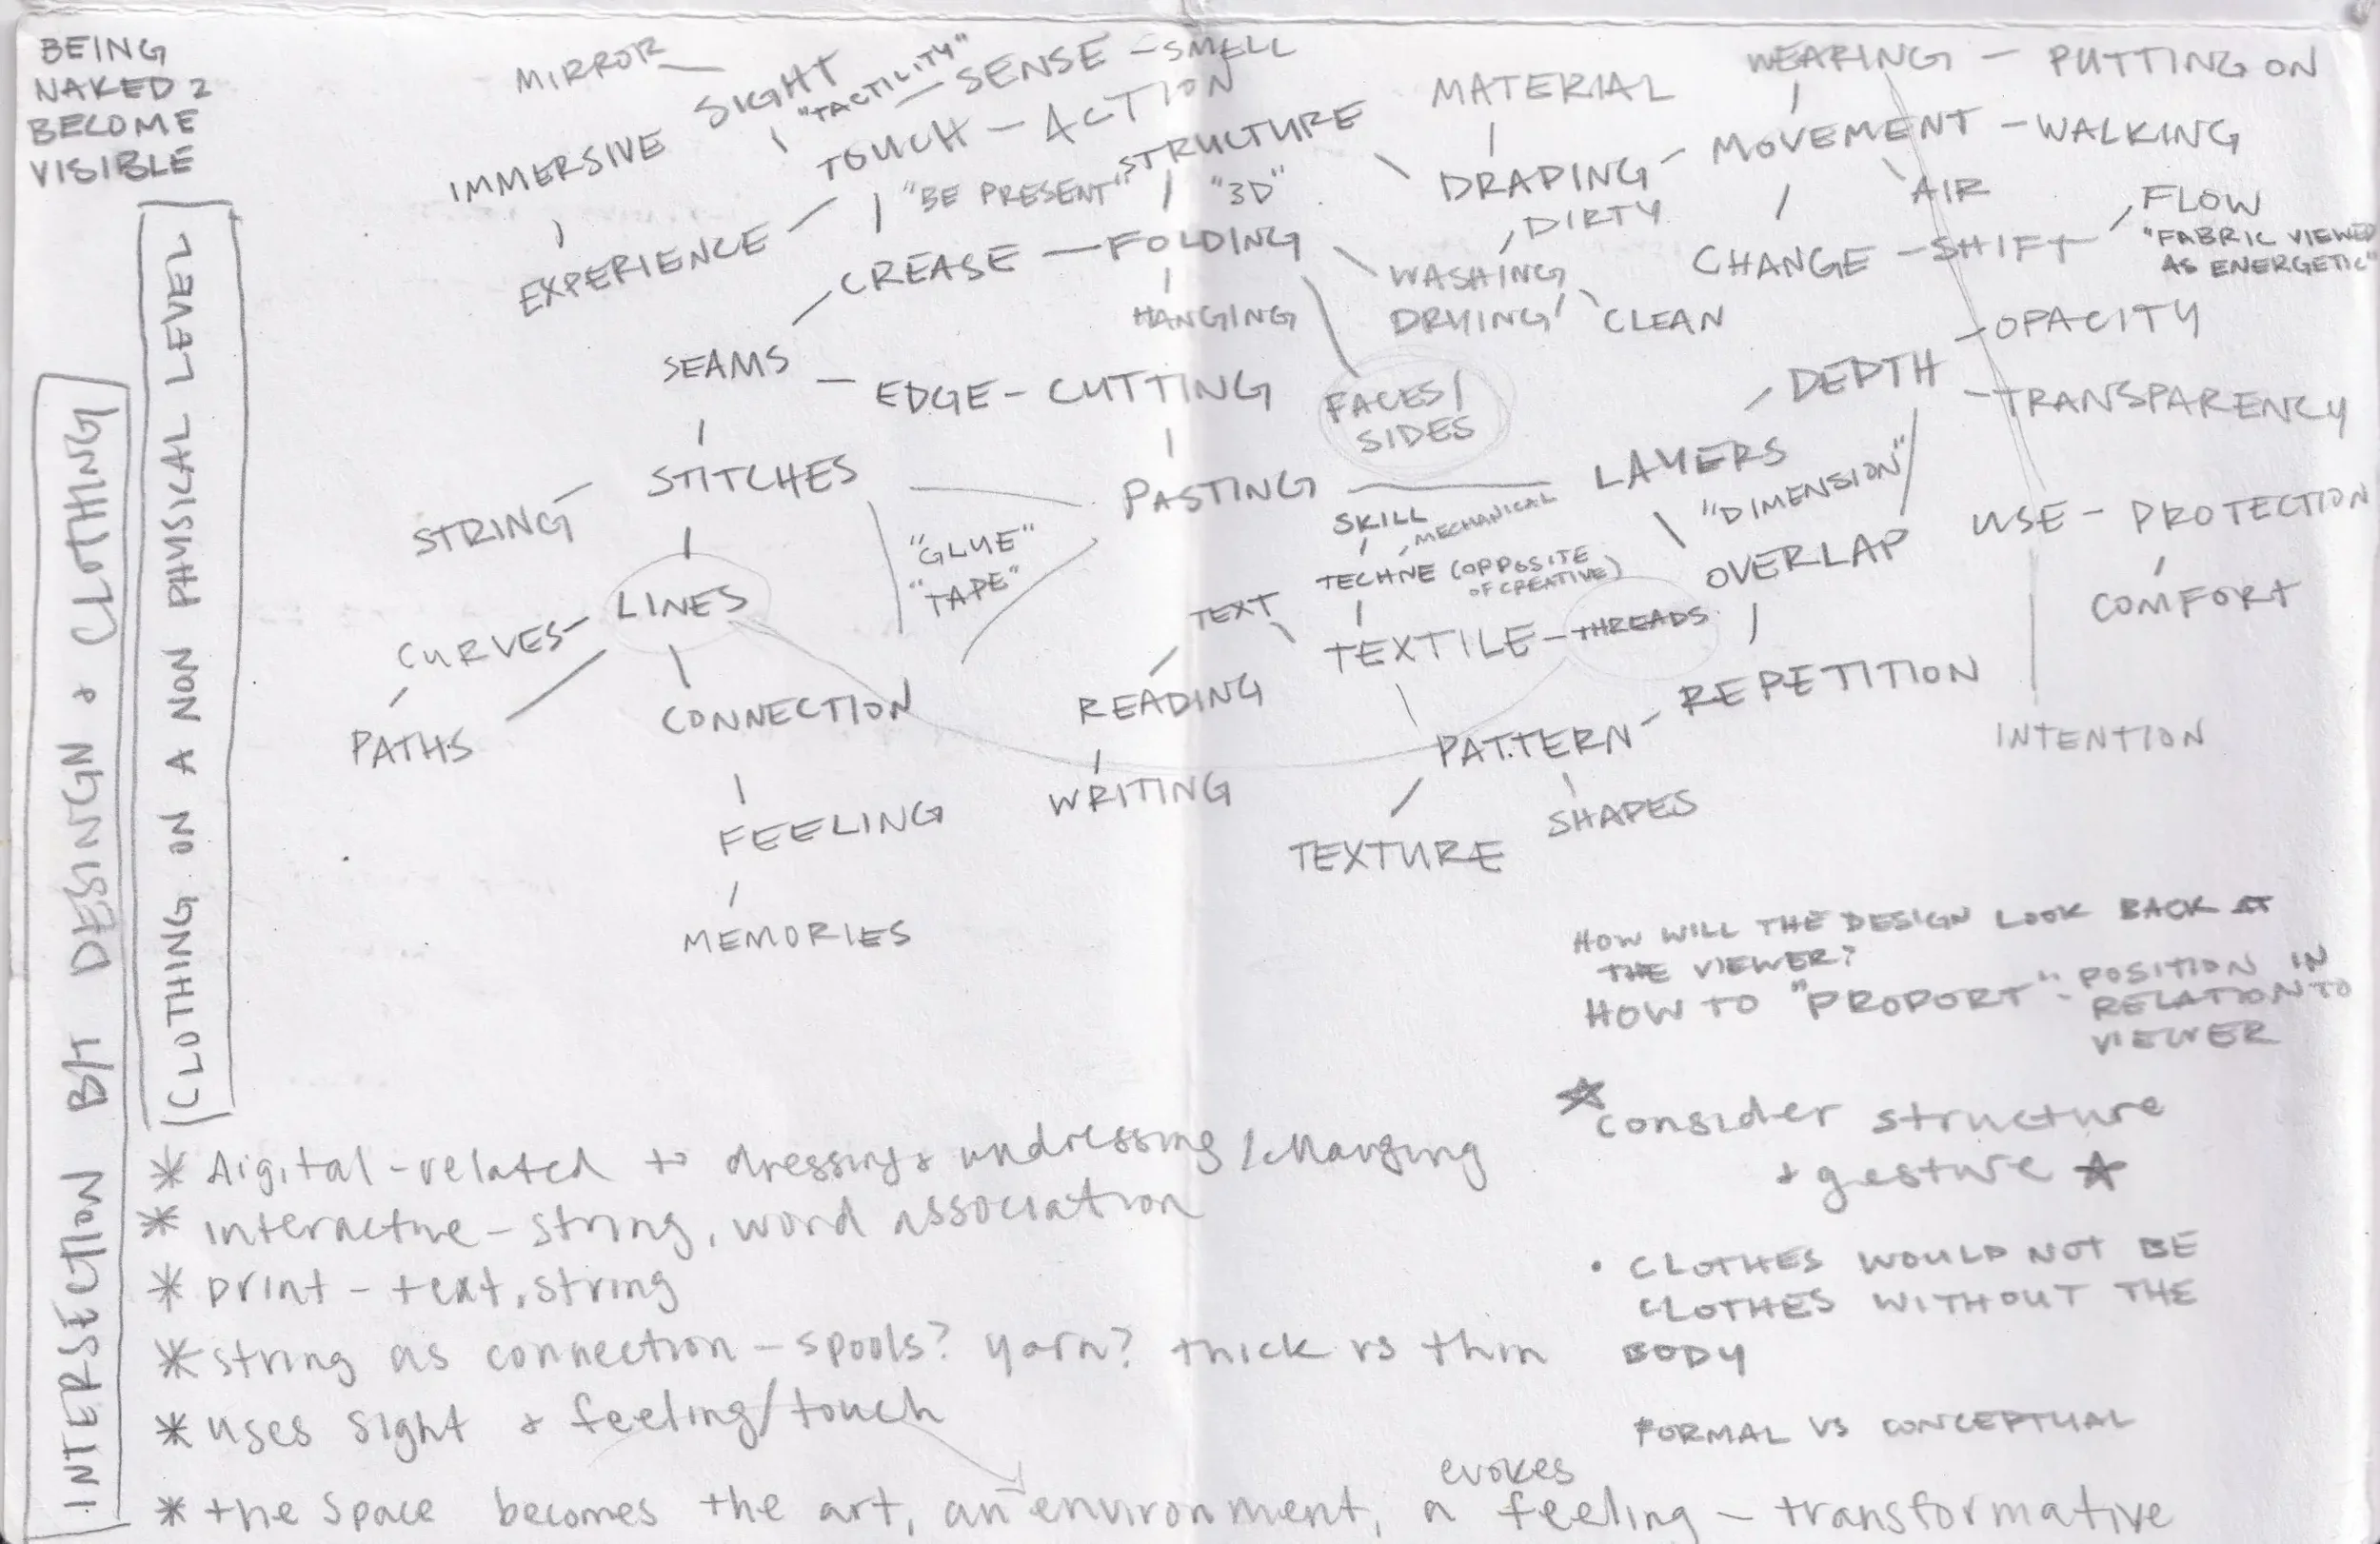 BEING
NAKED 2
BECOME
VISIBLE
INTERSECTION B/T DESINGN + CLOTHING
CLOTHING ON A NON PHYSICAL LEVEL
MIRROR
SIGHT
"TACTILITY"
SENSE - SMELL
IMMERSIVE
TOUCH - ACTION
"BE PRESENT"
EXPERIENCE
STRUCTURE
"3D"
CREASE - FOLDING
HANGING
MATERIAL
DRAPING - MOVEMENT - WALKING
WEARING - PUTTING ON
DIRTY
WASHING
DRYING
CLEAN
AIR
CHANGE - SHIFT
FLOW
"FABRIC VIEWED
AS ENERGETIC"
SEAMS - EDGE - CUTTING
FACES/
SIDES
DEPTH - OPACITY
- TRANSPARENCY
STITCHES
STRING
PASTING
LAYERS
"DIMENSION"
OVERLAP
USE - PROTECTION
COMFORT
INTENTION
"GLUE"
"TAPE"
SKILL
MECHANICAL
TECHNE (OPPOSITE
OF CREATIVE)
LINES
CURVES
PATHS
CONNECTION
FEELING
MEMORIES
TEXT
READING
WRITING
TEXTILE - THREADS
PATTERN - REPETITION
TEXTURE
SHAPES
HOW WILL THE DESIGN LOOK BACK AT
THE VIEWER?
HOW TO "PROPORT" - POSITION IN
RELATION TO
VIEWER
☆ consider structure
+ gesture ☆
• CLOTHES WOULD NOT BE
CLOTHES WITHOUT THE
BODY
FORMAL VS CONCEPTUAL
* digital - related to dressing + undressing / changing
* interactive - string, word association
* print - text, string
* string as connection - spools? yarn? thick vs thin
* uses sight + feeling/touch
evokes
* the space becomes the art, an environment, a feeling - transformative